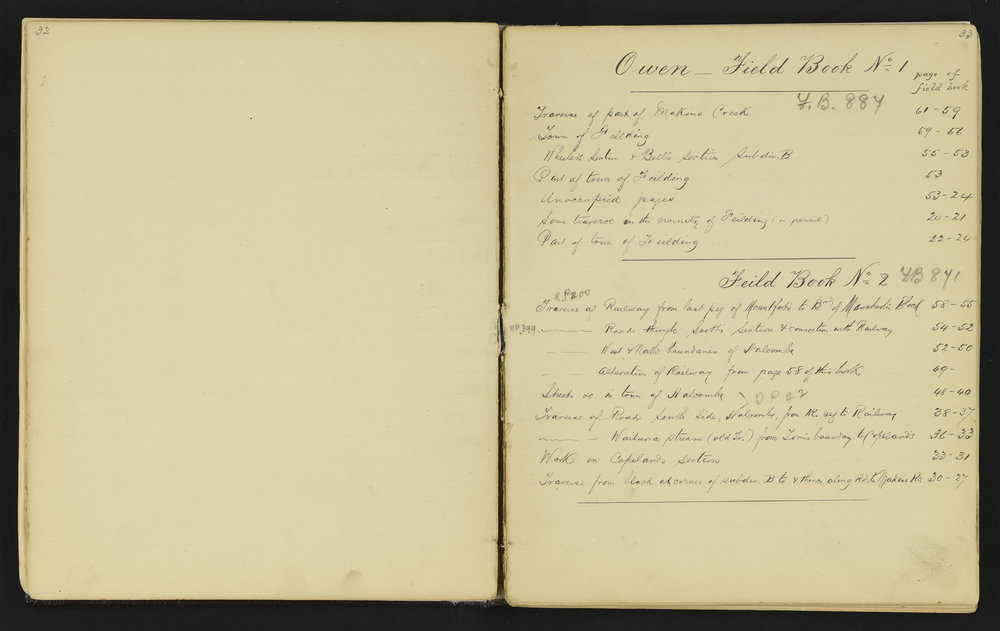 32
33
Owen - Field Book No. 1
page of
field book
F.B. 887
Traverse of part of Makino Creek 61-59
Town of Feilding 59-56
Wheeler's Section & Bell's Section Subdiv B 55-53
Part of town of Feilding 53
Unoccupied pages 53-24
Some traverse in the vicinity of Feilding (in pencil) 20-21
Part of town of Feilding 22-24
Feild Book No. 2 FB 871
R.P. 200
Traverse of Railway from last peg of Mountforts to Bdy of Manchester Block 58-55
RP.399
Road through Section & connection with Railway 54-52
West & North boundaries of Halcombe 52-50
Alteration of Railway from page 58 of this book 49-
Streets &c in town of Halcombe 48-40
Traverse of Road South Side, Halcombe, from peg to Railway 38-37
Stream (old Tr.) from boundary to Copeland's 36-33
Work on Copeland's Section 33-31
Traverse from block at corner of subdiv. B to & thence along Rd. to Makino Rd. 30-27